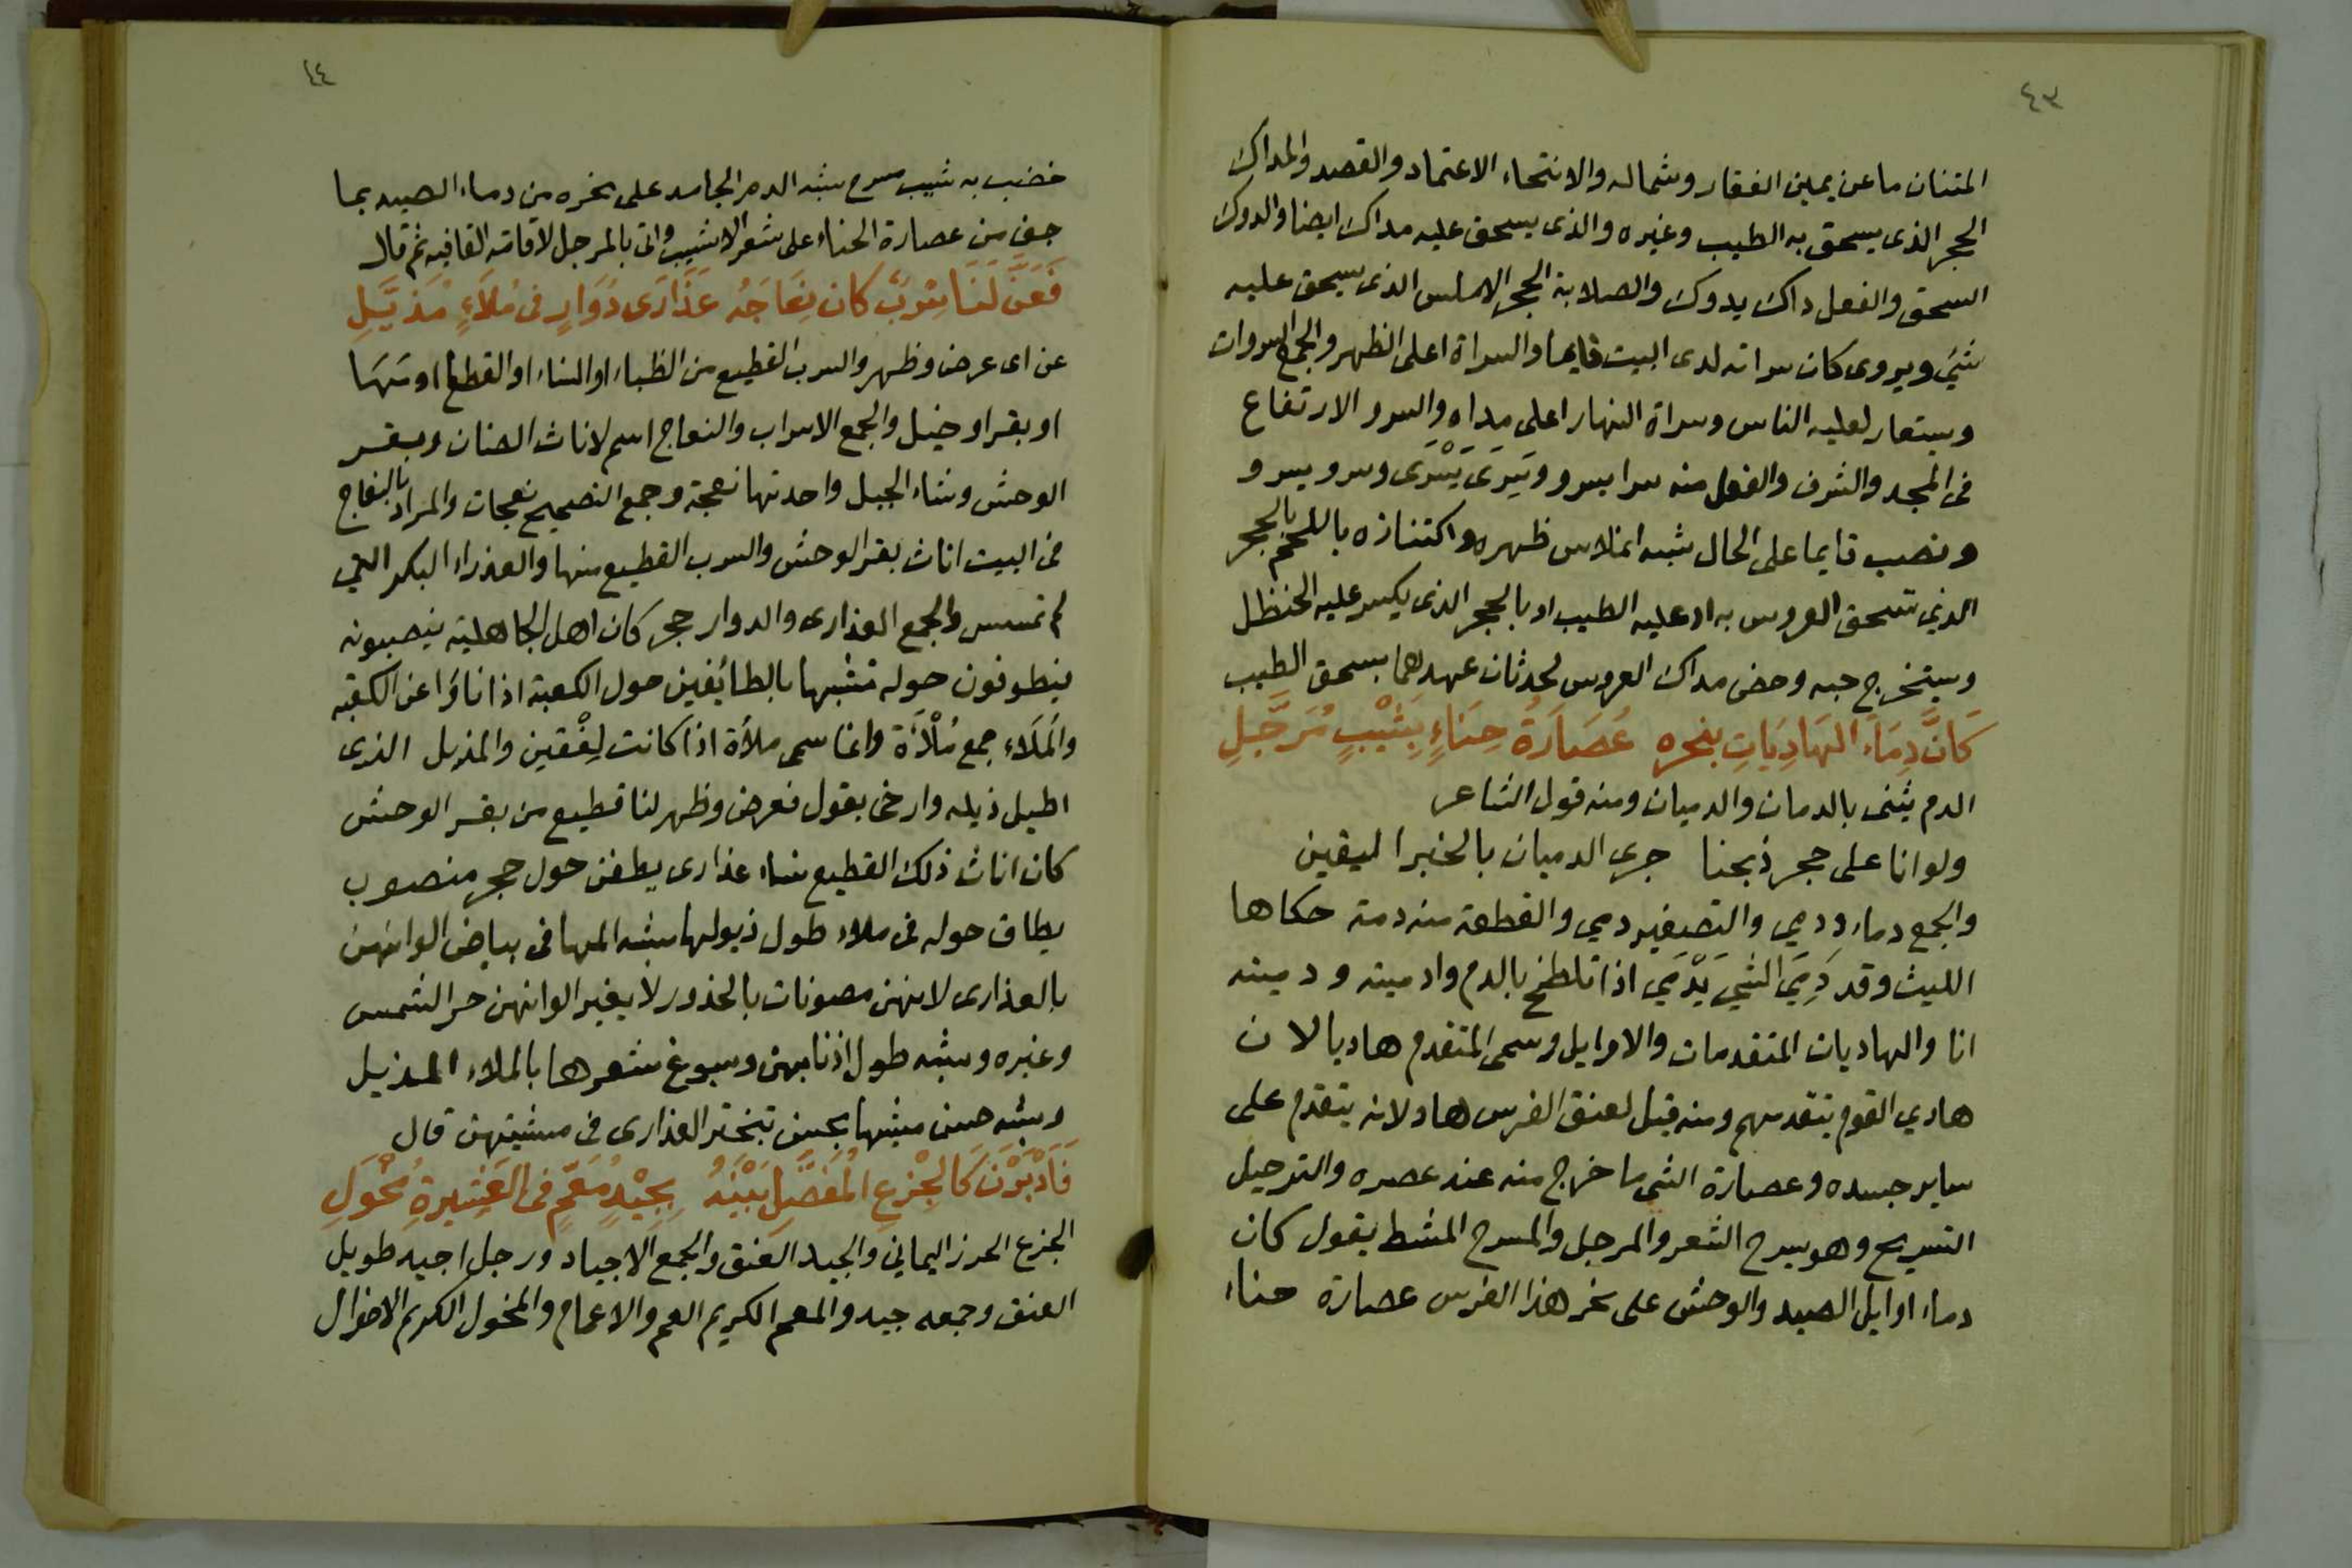 ٤٣
المتنان ما عن يمين الفقار وشماله والانتحاء الاعتماد والقصد والمداك
الحجر الذى يسحق به الطيب وغيره والذى يسحق عليه مداك ايضا والدوك
السحق والفعل داك يدوك والصلابة الحجر الاملس الذى يسحق عليه
شئ ويروى كان سراته لدى البيت قايما والسراة اعلى الظهر والجمع السروات
ويستعار لعلية الناس وسراة النهار اعلى مداه والسرو الارتفاع
فى المجد والشرف والفعل منه سرا يسرو وسَرِىَ يَسْرَى وسرو يسرو
ونصب قايما على الحال شبه انملاس ظهره واكتنازه باللحم بالحجر
الذي تسحق العروس به او عليه الطيب او بالحجر الذى يكسر عليه الحنظل
ويستخرج حبه وخص مداك العروس لحدثان عهدهما بسحق الطيب
كَانَّ دِمَاءَ الهَادِيَاتِ بنحره عُصَارَةُ حِنَاءٍ بِشَيْبٍ مُرَجَّلِ
الدم يثنى بالدمان والدميان ومنه قول الشاعر
ولو انا على حجر ذبحنا جرى الدميان بالخبر اليقين
والجمع دماء ودمي والتصغير دمي والقطعة منه دمة حكاها
الليث وقد دَمِيَ الشي يَدْمَي اذا تلطخ بالدم وادميته ودميته
انا والهاديات المتقدمات والاوايل وسمى المتقدم هاديا لان
هادي القوم يتقدمهم ومنه قيل لعنق الفرس هاد لانه يتقدم على
ساير جسده وعصارة الشى ما خرج منه عند عصره والترجيل
التسريح وهو يسرح الشعر والمرجل والمسرح المشط يقول كان
دماء اوايل الصيد والوحش على نحر هذا الفرس عصارة حناء
٤٤
خضب به شيب مسرح شبه الدم الجامد على نحره من دماء الصيد بما
جف من عصارة الحناء على شعر الاشيب واتى بالمرجل لاقامة القافيه ثم قال
فَعَنَّ لَنَا سِرْبٌ كان نِعَاجَهُ عَذَارَى دَوَارٍ فى مُلاَءٍ مُذَيَّلِ
عن اى عرض وظهر والسرب القطيع من الظباء او النساء او القطا او مَهَا
او بقر او خيل والجمع الاسراب والنعاج اسم لاناث الضان وبقر
الوحش وشاء الجبل واحدتها نعجة وجمع التصحيح نعجات والمراد بالنعاج
فى البيت اناث بقر الوحش والسرب القطيع منها والعذراء البكر التي
لم تمسس والجمع العذارى والدوار حجر كان اهل الجاهلية ينصبونه
فيطوفون حوله تشبها بالطائفين حول الكعبة اذا ناؤا عن الكعبه
والمُلَاء جمع مُلْأَة وانما سمى ملأة اذا كانت لِفْقين والمذيل الذى
اطيل ذيله وارخى يقول فعرض وظهر لنا قطيع من بقر الوحش
كان اناث ذلك القطيع نساء عذارى يطفن حول حجر منصوب
يطاف حوله فى ملاء طول ذيولها شبه المها فى بياض الوانهن
بالعذارى لانهن مصونات بالخدور لا يغير الوانهن حر الشمس
وغيره وشبه طول اذنابهن وسبوغ شعرها بالملاء المذيل
وشبه حسن مشيها بحسن تبختر العذارى فى مشيتهن قال
فَاَدْبَرْنَ كَالجِزعِ المُفَصَّلِ بَيْنَهُ بِجِيْدٍ مُعَمٍّ فى العَشِيرةِ مُخْوَلِ
الجزع الخرز اليماني والجيد العنق والجمع الاجياد ورجل اجيد طويل
العنق وجمعه جيد والمعم الكريم العم والاعمام والمخول الكريم الاخوال